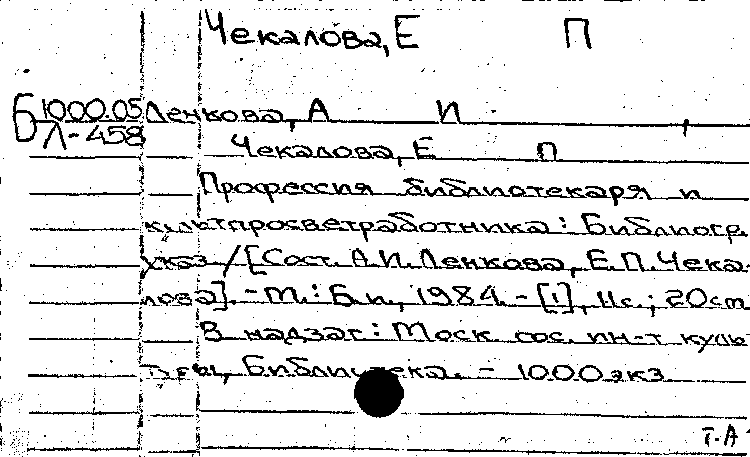 Чекалова, Е П
Б 1000.05 Ленкова, А И
Л-458
Чекалова, Е П
Профессия библиотекаря и
культпросветработника: Библиогр.
указ / [Сост. А.И. Ленкова, Е.П. Чека-
лова]. - М.: Б.и., 1984. - [1], 11с.; 20см
В надзаг: Моск. гос. ин-т куль-
туры, Библиотека. - 1000 экз
Т.А